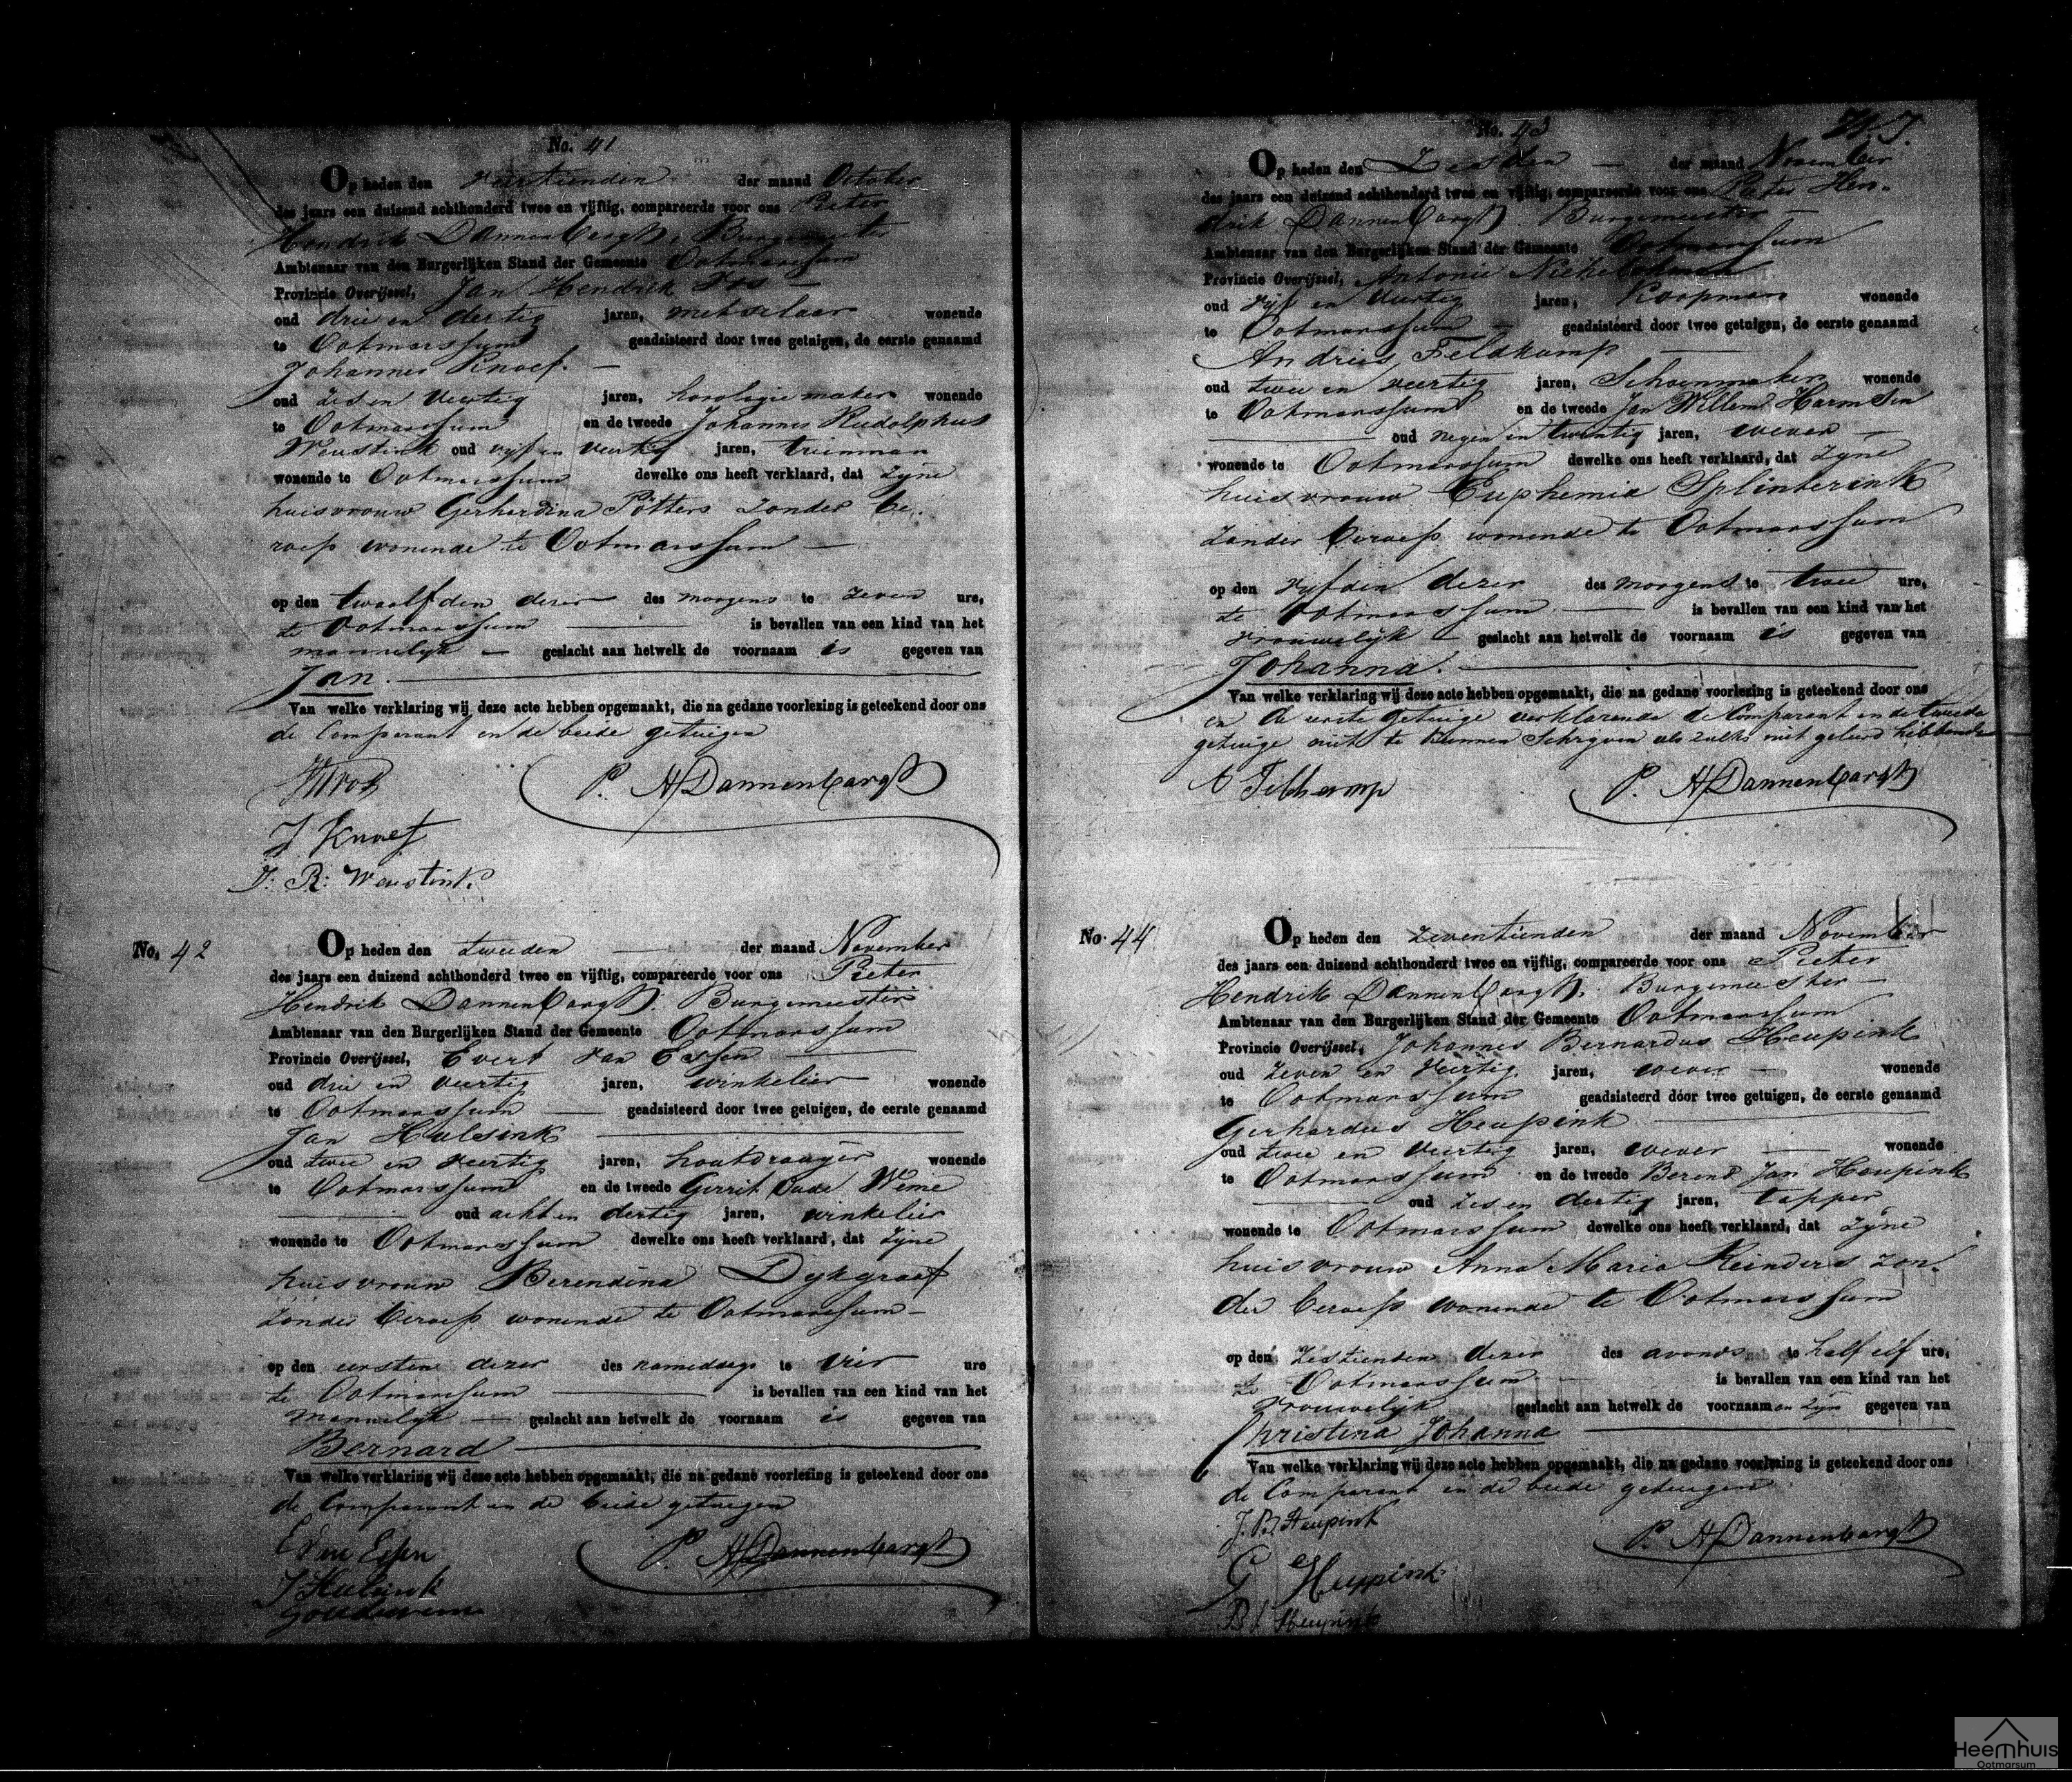 No. 41
Op heden den veertienden der maand October
des jaars een duizend achthonderd twee en vijftig, compareerde voor ons Pieter
Hendrik Dannenbargh, Burgemeester
Ambtenaar van den Burgerlijken Stand der Gemeente Ootmarssum
Provincie Overijssel, Jan Hendrik Vos
oud drie en dertig jaren, metselaar wonende
te Ootmarssum geadsisteerd door twee getuigen, de eerste genaamd
Johannes Knoef.
oud zes en veertig jaren, horologiemaker wonende
te Ootmarssum en de tweede Johannes Rudolphus
Weustink oud vijf en veertig jaren, tuinman
wonende te Ootmarssum dewelke ons heeft verklaard, dat zyne
huisvrouw Gerhardina Pötters zonder be-
roep wonende te Ootmarssum
op den twaalfden dezer des morgens te zeven ure,
te Ootmarssum is bevallen van een kind van het
mannelyk geslacht aan hetwelk de voornaam is gegeven van
Jan.
Van welke verklaring wij deze acte hebben opgemaakt, die na gedane voorlezing is geteekend door ons
de Comparant en de beide getuigen
P. H Dannenbargh
J Knoef
J: R: Weustink.
No. 42
Op heden den tweeden der maand November
des jaars een duizend achthonderd twee en vijftig, compareerde voor ons Pieter
Hendrik Dannenbargh. Burgemeester
Ambtenaar van den Burgerlijken Stand der Gemeente Ootmarssum
Provincie Overijssel, Evert van Essen
oud drie en veertig jaren, winkelier wonende
te Ootmarssum geadsisteerd door twee getuigen, de eerste genaamd
Jan Hulsink
oud twee en veertig jaren, houtdraayer wonende
te Ootmarssum en de tweede Gerrit Oude Weme
oud acht en dertig jaren, winkelier
wonende te Ootmarssum dewelke ons heeft verklaard, dat zyne
huisvrouw Berendina Dykgraaf
zonder beroep wonende te Ootmarssum
op den eersten dezer des namiddags te vier ure
te Ootmarssum is bevallen van een kind van het
mannelyk geslacht aan hetwelk de voornaam is gegeven van
Bernard
Van welke verklaring wij deze acte hebben opgemaakt, die na gedane voorlezing is geteekend door ons
de Comparant en de beide getuigen
E van Essen P. H Dannenbargh
J Hulsink
No. 43
Op heden den Zesden der maand November
des jaars een duizend achthonderd twee en vijftig, compareerde voor ons Pieter Hen-
drik Dannenbargh. Burgemeester
Ambtenaar van den Burgerlijken Stand der Gemeente Ootmarssum
Provincie Overijssel, Antonie
oud vijf en veertig jaren, Koopman wonende
te Ootmarssum geadsisteerd door twee getuigen, de eerste genaamd
Andries Feldkamp
oud twee en veertig jaren, Schoenmaker wonende
te Ootmarssum en de tweede Jan Willem Harmsen
oud negen en twintig jaren, wever
wonende te Ootmarssum dewelke ons heeft verklaard, dat zyne
huisvrouw Euphemia Splinterink
zonder beroep wonende te Ootmarssum
op den vyfden dezer des morgens te twee ure,
te Ootmarssum is bevallen van een kind van het
vrouwelyk geslacht aan hetwelk de voornaam is gegeven van
Johanna.
Van welke verklaring wij deze acte hebben opgemaakt, die na gedane voorlezing is geteekend door ons
en de eerste getuige verklarende de Comparant en de tweede
getuige niet te kunnen Schryven als zulks niet geleerd hebbende
P. H Dannenbargh
No. 44
Op heden den zeventienden der maand November
des jaars een duizend achthonderd twee en vijftig, compareerde voor ons Pieter
Hendrik Dannenbargh. Burgemeester
Ambtenaar van den Burgerlijken Stand der Gemeente Ootmarssum
Provincie Overijssel, Johannes Bernardus Heupink
oud zeven en veertig jaren, wever wonende
te Ootmarssum geadsisteerd door twee getuigen, de eerste genaamd
Gerhardus Heupink
oud twee en veertig jaren, wever wonende
te Ootmarssum en de tweede Berend Jan Heupink
oud zes en dertig jaren, tapper
wonende te Ootmarssum dewelke ons heeft verklaard, dat zyne
huisvrouw Anna Maria Reinders zon-
der beroep wonende te Ootmarssum
op den zestienden dezer des avonds te half elf ure,
te Ootmarssum is bevallen van een kind van het
vrouwelyk geslacht aan hetwelk de voornaamen zyn gegeven van
Christina Johanna
Van welke verklaring wij deze acte hebben opgemaakt, die na gedane voorlezing is geteekend door ons
de Comparant en de beide getuigen
J. B. Heupink P. H Dannenbargh
G Heupink
B J Heupink
Heemhuis
Ootmarsum